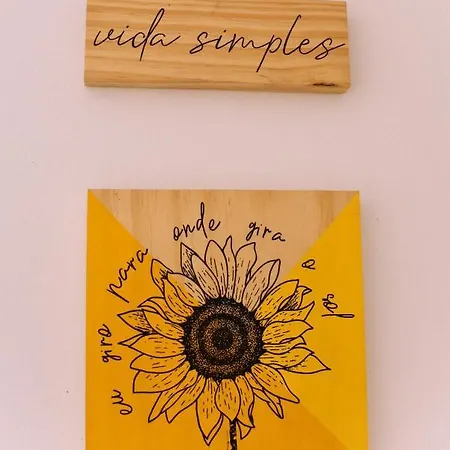 vida simples
eu gira para onde gira o sol